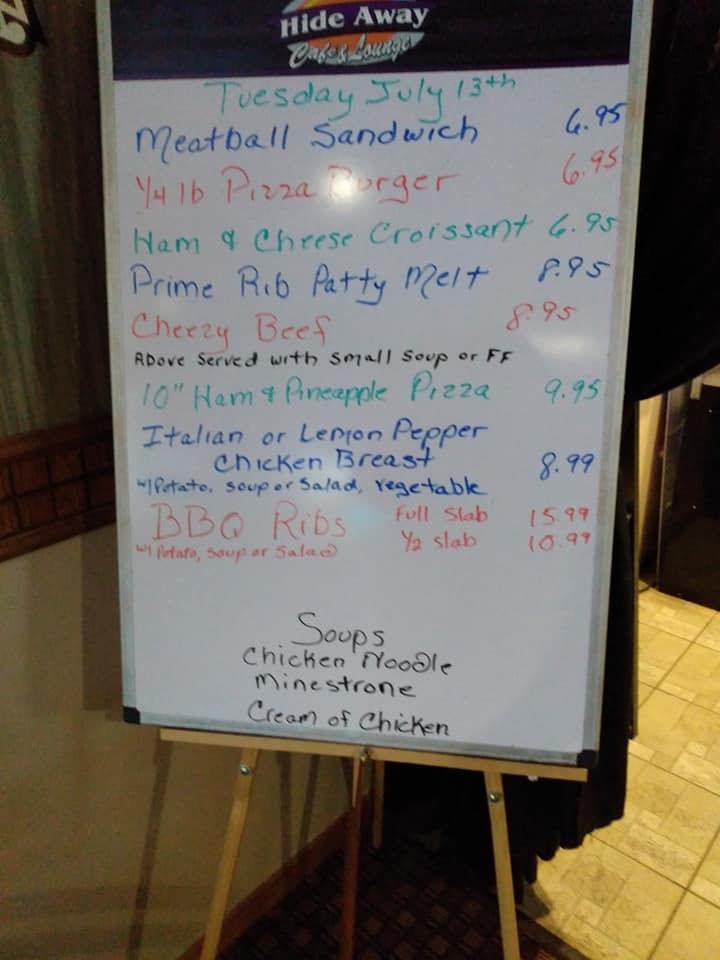 Hide Away
Cafe & Lounge
Tuesday July 13th
Meatball Sandwich 6.95
1/4 lb Pizza Burger 6.95
Ham & Cheese Croissant 6.95
Prime Rib Patty Melt 8.95
Cheezy Beef 8.95
Above Served with Small Soup or FF
10" Ham & Pineapple Pizza 9.95
Italian or Lemon Pepper
Chicken Breast 8.99
w/Potato, Soup or Salad, vegetable
BBQ Ribs Full Slab 15.99
w/ Potato, Soup or Salad 1/2 slab 10.99
Soups
Chicken Noodle
Minestrone
Cream of Chicken